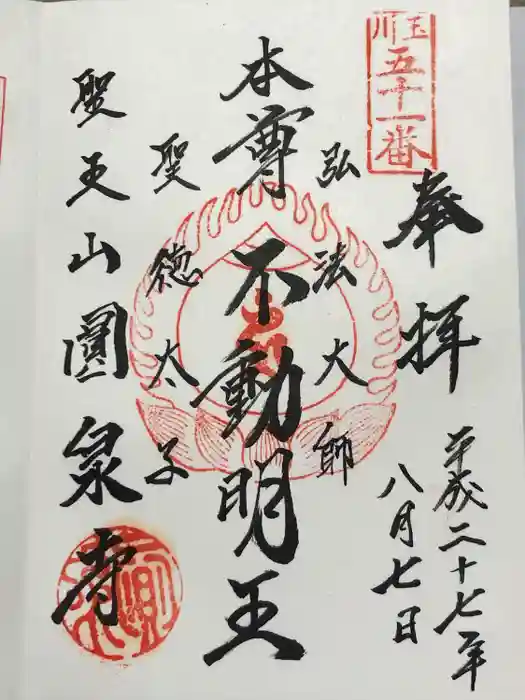 玉川
五十一番
奉拝
平成二十七年
八月七日
弘法大師
本尊不動明王
聖徳太子
聖王山圓泉寺